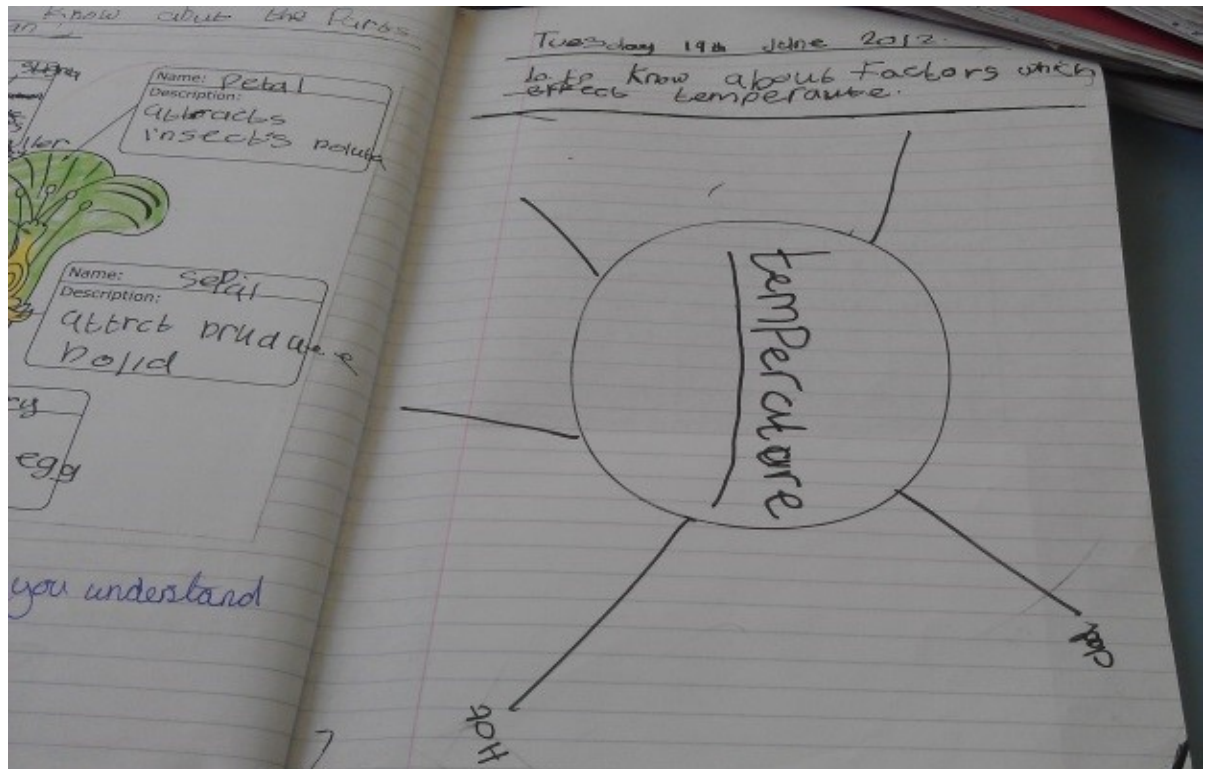 Know abut the Parts
Name: Petal
Description:
attracts
insects
Name: sepal
Description:
attrct
egg
you understand
Tuesday 19th June 2012.
to Know about Factors which
effect temperaute.
temPerature
Hot